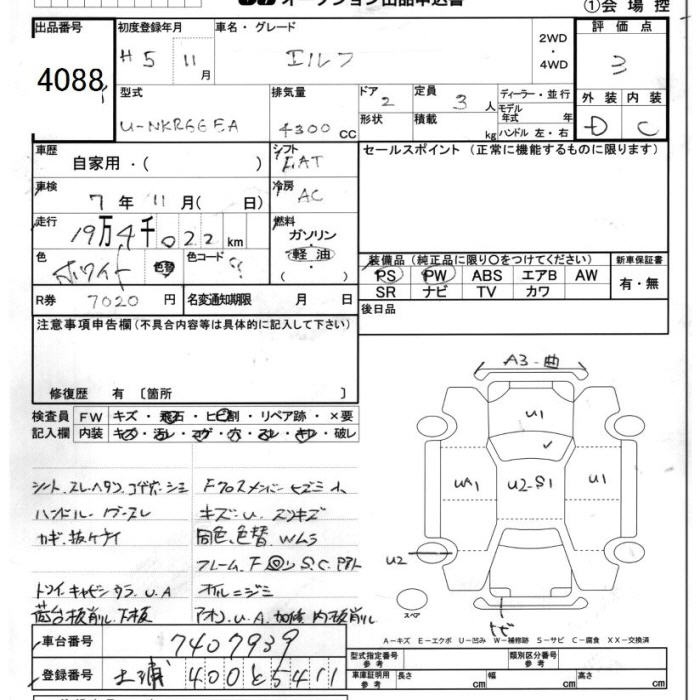 オークション出品申込書
①会場控
出品番号
4088
初度登録年月
H 5 11月
車名・グレード
エルフ
2WD
・
4WD
評価点
3
外装 内装
D C
型式
U-NKR66EA
排気量
4300 CC
ドア 2
形状
定員 3 人
積載 kg
ディーラー・並行
モデル年式 年
ハンドル 左・右
車歴
自家用・( )
シフト
車検
7年11月( 日)
冷房
AC
走行
19万4千022km
燃料
ガソリン
・
軽油
・
( )
色
ホワイト
色替
色コード
R券 7020円
名変通知期限 月 日
セールスポイント(正常に機能するものに限ります)
装備品(純正品に限り○をつけてください)
PS PW ABS エアB AW
SR ナビ TV カワ
新車保証書
有・無
後日品
注意事項申告欄(不具合内容等は具体的に記入して下さい)
修復歴 有〔箇所 〕
検査員記入欄
FW キズ・飛石・ヒビ割・リペア跡・×要
内装 キズ・汚レ・コゲ・穴・スレ・キレ・破レ
シート.スレ.ヘタリ.コゲ穴.シミ
ハンドル.スレ
カギ.抜ケナイ
Fクロスメンバー
キズ.U.スリキズ
同色.色替.W.L.S
フレーム.F
オイルニジミ
荷台板削レ.下板
アオリ.U.A.加修.内板削レ
A3-曲
U1
UA1
U2-S1
U1
U2
スペア
トビ
A-キズ E-エクボ U-凹み W-補修跡 S-サビ C-腐食 XX-交換済
車台番号
7407939
登録番号
土浦 400 と 5411
型式指定番号 参考
類別区分番号 参考
車庫証明用 参考
長さ cm 幅 cm 高さ cm